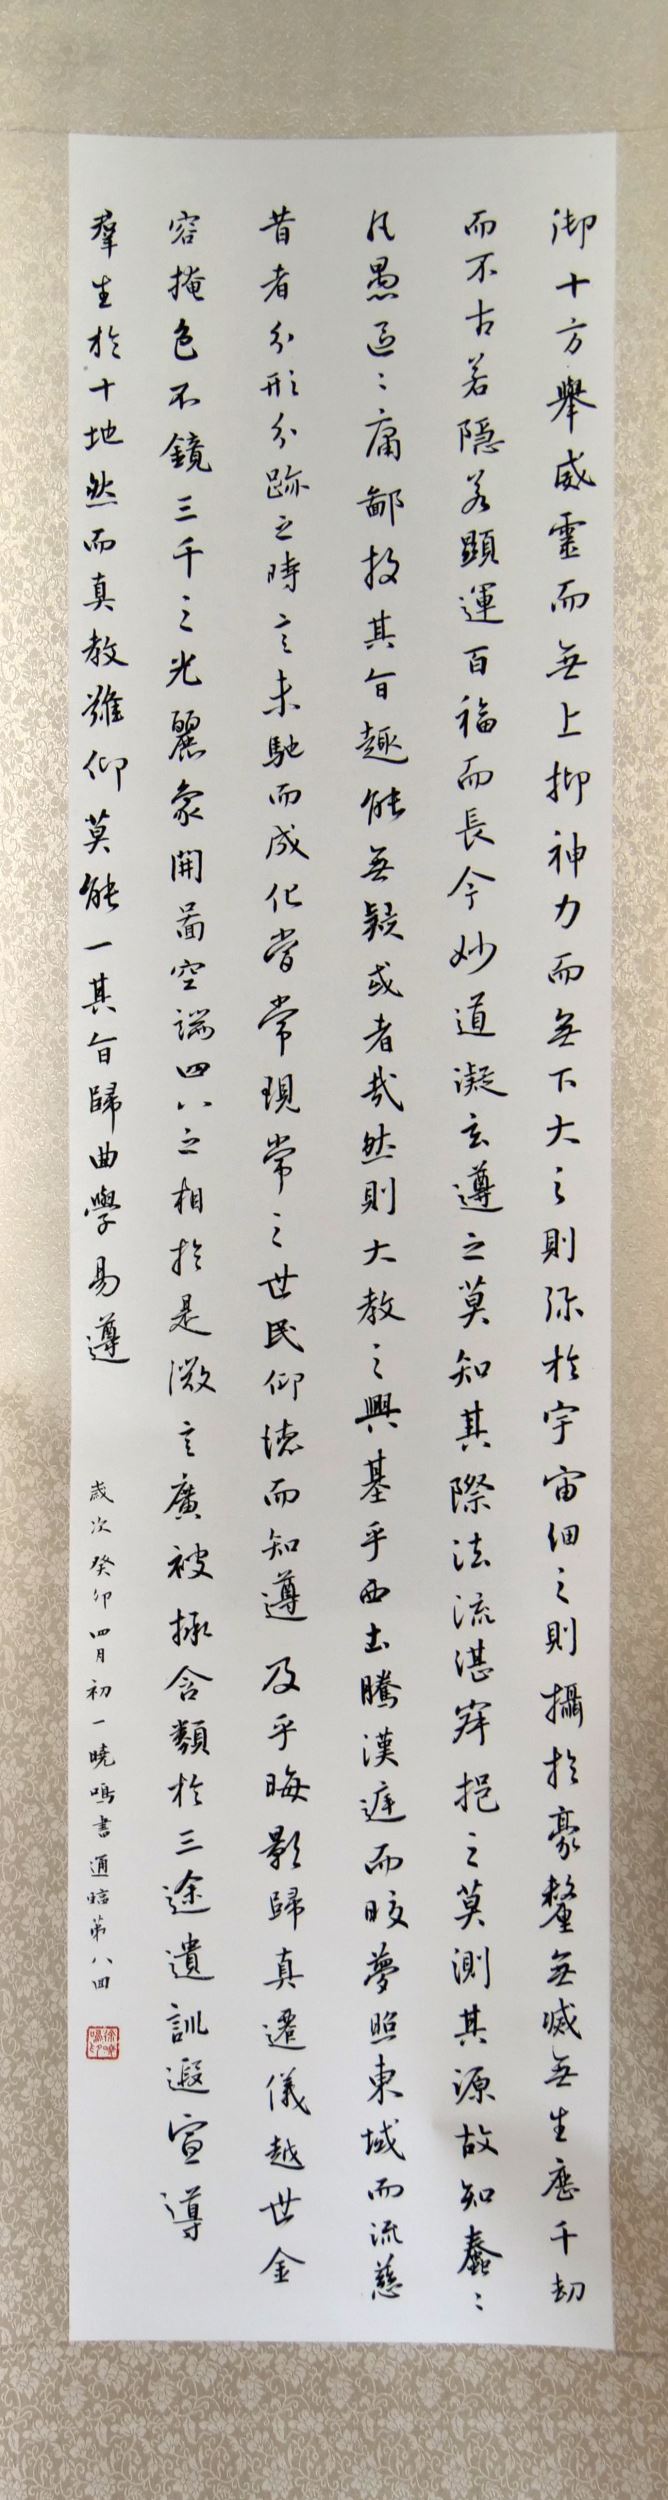 御十方舉威靈而無上抑神力而無下大之則彌於宇宙細之則攝於豪釐無滅無生歷千劫
而不古若隱若顯運百福而長今妙道凝玄遵之莫知其際法流湛寂挹之莫測其源故知蠢〻
凡愚區〻庸鄙投其旨趣能無疑或者哉然則大教之興基乎西土騰漢庭而晈夢照東域而流慈
昔者分形分跡之時言未馳而成化當常現常之世民仰德而知遵及乎晦影歸真遷儀越世金
容掩色不鏡三千之光麗象開圖空端四八之相於是微言廣被拯含類於三途遺訓遐宣導
羣生於十地然而真教難仰莫能一其旨歸曲學易遵
歲次癸卯四月初一曉鳴書通臨第八回